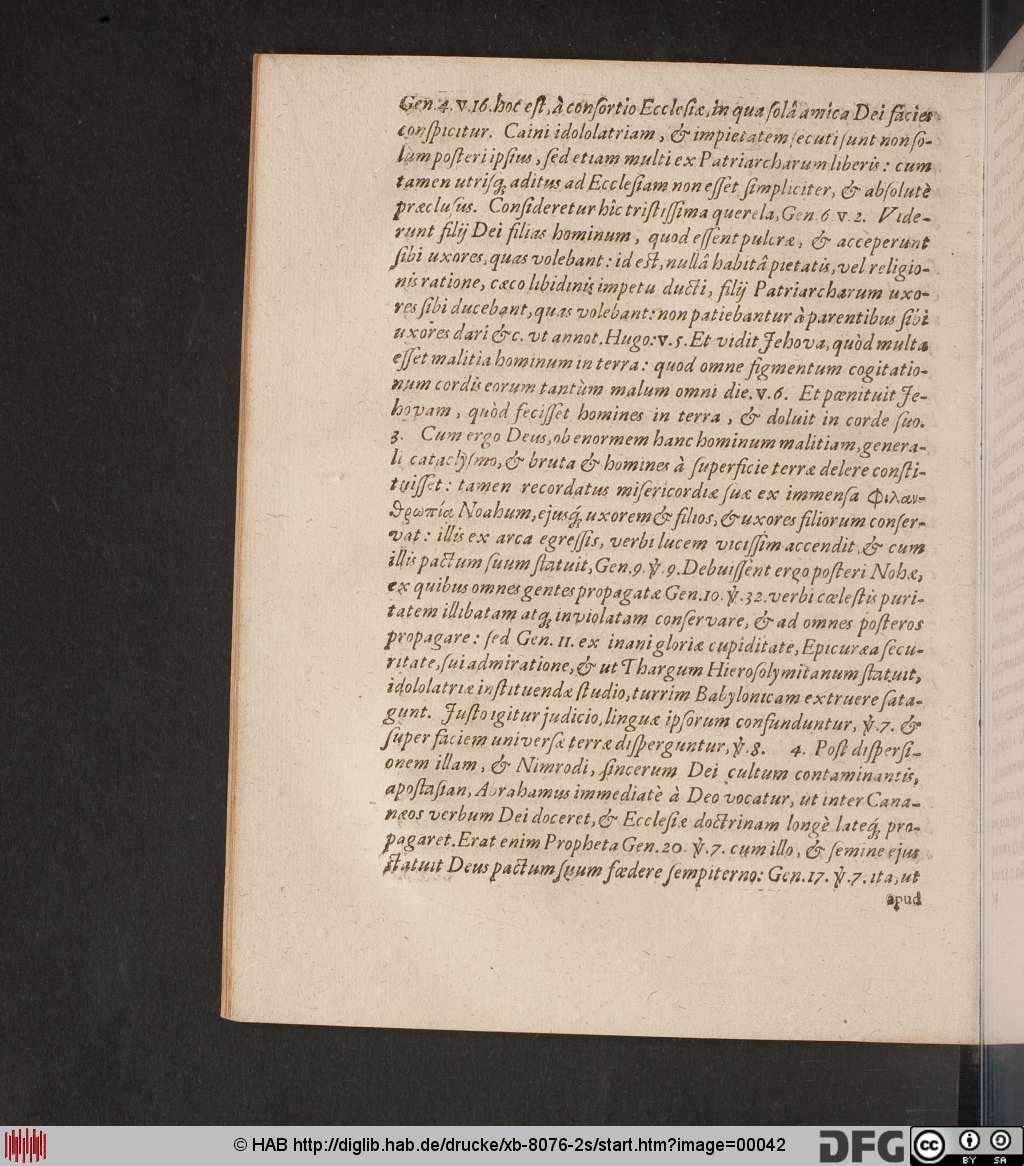 Gen. 4. v. 16. hoc est, à consortio Ecclesiæ, in qua solâ amica Dei facies
conspicitur. Caini idololatriam, & impietatem secuti sunt non so-
lùm posteri ipsius, sed etiam multi ex Patriarcharum liberis: cum
tamen utrisq; aditus ad Ecclesiam non esset simpliciter, & absolutè
præclusus. Consideretur hîc tristissima querela, Gen. 6 v. 2. Vide-
runt filij Dei filias hominum, quod essent pulcræ, & acceperunt
sibi uxores, quas volebant: id est, nullâ habitâ pietatis, vel religio-
nis ratione, cæco libidinis impetu ducti, filij Patriarcharum uxo-
res sibi ducebant, quas volebant: non patiebantur à parentibus sibi
uxores dari &c. vt annot. Hugo: v. 5. Et vidit Jehova, quòd multa
esset malitia hominum in terra: quod omne figmentum cogitatio-
num cordis eorum tantùm malum omni die. v. 6. Et pœnituit Je-
hovam, quòd fecisset homines in terra, & doluit in corde suo.
3. Cum ergo Deus, ob enormem hanc hominum malitiam, genera-
li cataclysmo, & bruta & homines à superficie terræ delere consti-
tuisset: tamen recordatus misericordiæ suæ ex immensa Φιλαν-
θρωπία Noahum, ejusq́; uxorem & filios, & uxores filiorum conser-
vat: illis ex arca egressis, verbi lucem vicissim accendit, & cum
illis pactum suum statuit, Gen. 9. ℣. 9. Debuissent ergo posteri Nohæ,
ex quibus omnes gentes propagatæ Gen. 10. ℣. 32. verbi cœlestis puri-
tatem illibatam atq; inviolatam conservare, & ad omnes posteros
propagare: sed Gen. 11. ex inani gloriæ cupiditate, Epicuræa secu-
ritate, sui admiratione, & ut Thargum Hierosolymitanum statuit,
idololatriæ instituendæ studio, turrim Babylonicam extruere sata-
gunt. Justo igitur judicio, linguæ ipsorum confunduntur, ℣. 7. &
super faciem universæ terræ disperguntur, ℣. 8. 4. Post dispersi-
onem illam, & Nimrodi, sincerum Dei cultum contaminantis,
apostasian, Abrahamus immediatè à Deo vocatur, ut inter Cana-
næos verbum Dei doceret, & Ecclesiæ doctrinam longè lateq́; pro-
pagaret. Erat enim Propheta Gen. 20. ℣. 7. cum illo, & semine ejus
statuit Deus pactum suum fœdere sempiterno: Gen. 17. ℣. 7. ita, ut
apud
© HAB http://diglib.hab.de/drucke/xb-8076-2s/start.htm?image=00042
DFG
cc BY SA